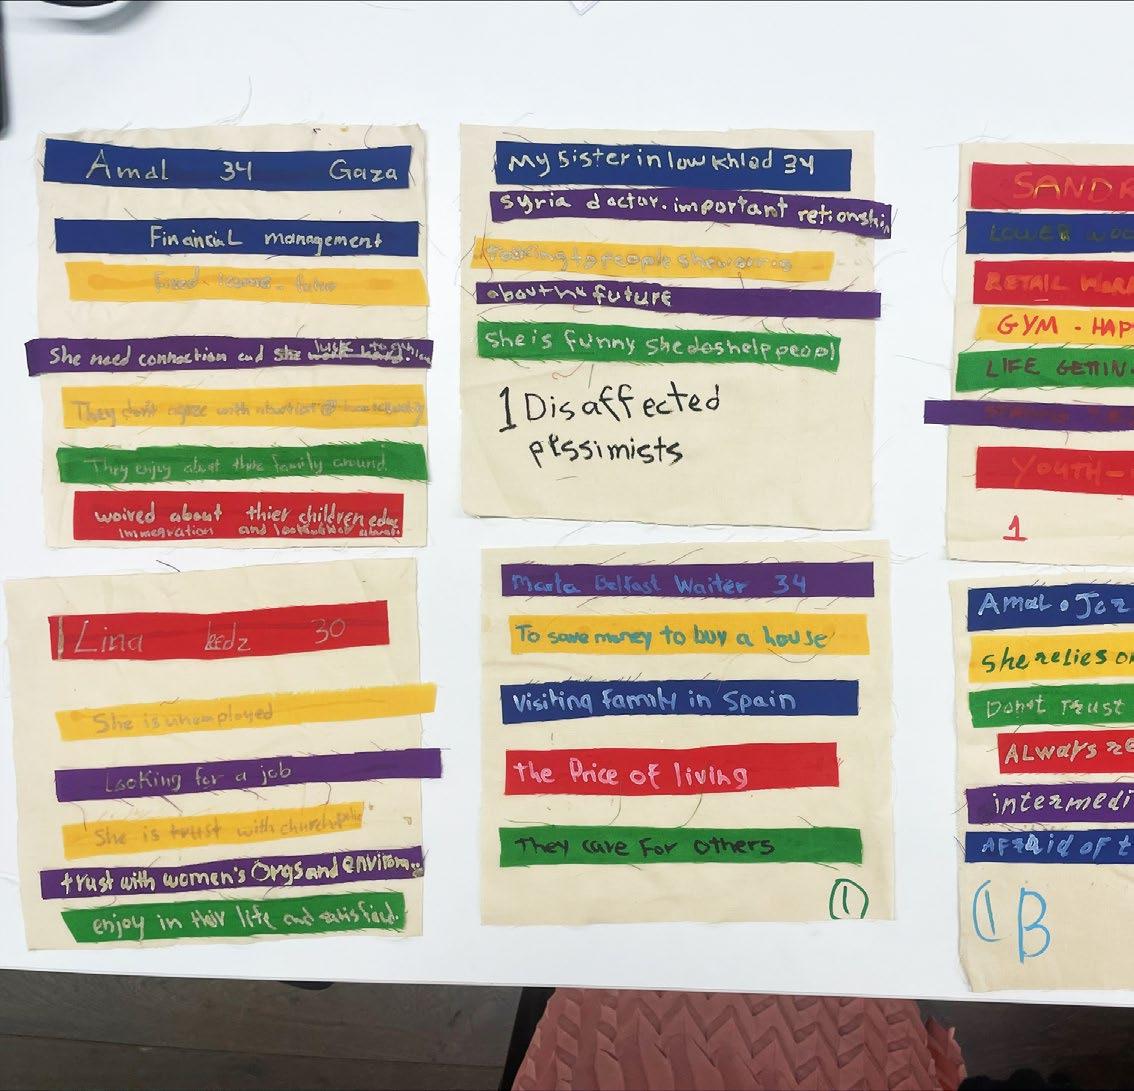 Amal 34 Gaza
Financial management
Fixed
She need connection and she work hard.
They don't agree with
They enjoy about their family around.
woired about thier children educ
immegration and
My sister in low khlod 34
syria doctor. important retionship
to people she
about the future
she is funny she does help peopl
1 Disaffected
pessimists
Lina leedz 30
She is unemployed
Looking for a job
She is trust with church
trust with women's Orgs and environ..
enjoy in their life and satisfied.
Marta Belfast Waiter 34
To save money to buy a house
visiting family in Spain
the Price of living
They care For others
1
SANDR
LOWER WOO
RETAIL WORK
GYM - HAP
LIFE GETTIN
YOUTH-
1
Amal . Joz
she relies on
Don't Trust
ALways re
intermedi
AFraid of t
1 B